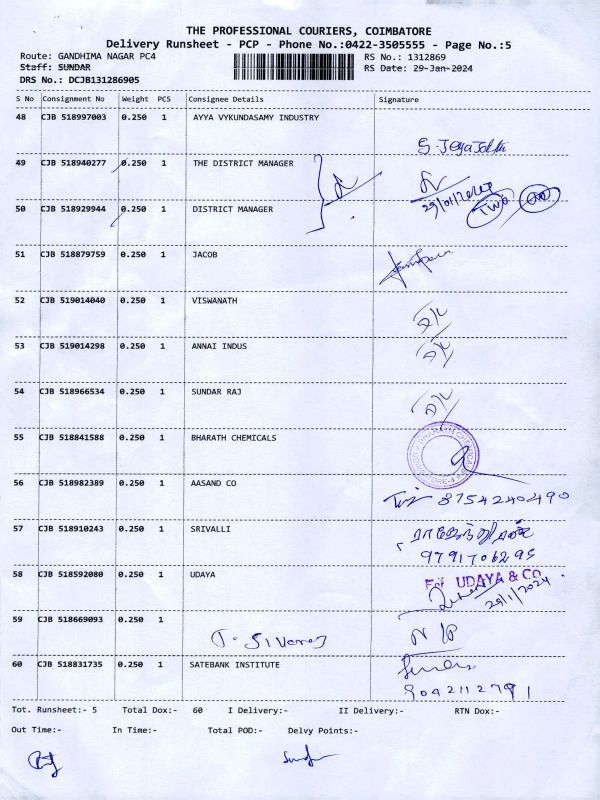 THE PROFESSIONAL COURIERS, COIMBATORE
Delivery Runsheet - PCP - Phone No.:0422-3505555 - Page No.:5
Route: GANDHIMA NAGAR PC4
RS No.: 1312869
Staff: SUNDAR
RS Date: 29-Jan-2024
DRS No.: DCJB131286905
S No Consignment No Weight PCS Consignee Details Signature
48 CJB 518997003 0.250 1 AYYA VYKUNDASAMY INDUSTRY
49 CJB 518940277 0.250 1 THE DISTRICT MANAGER
29/01/2024
Two
50 CJB 518929944 0.250 1 DISTRICT MANAGER
51 CJB 518879759 0.250 1 JACOB
52 CJB 519014040 0.250 1 VISWANATH
53 CJB 519014298 0.250 1 ANNAI INDUS
54 CJB 518966534 0.250 1 SUNDAR RAJ
55 CJB 518841588 0.250 1 BHARATH CHEMICALS
56 CJB 518982389 0.250 1 AASAND CO
8754240490
57 CJB 518910243 0.250 1 SRIVALLI
9791706295
58 CJB 518592080 0.250 1 UDAYA
UDAYA & CO
29/1/2024
59 CJB 518669093 0.250 1
60 CJB 518831735 0.250 1 SATEBANK INSTITUTE
9042112791
Tot. Runsheet:- 5 Total Dox:- 60 I Delivery:- II Delivery:- RTN Dox:-
Out Time:- In Time:- Total POD:- Delvy Points:-